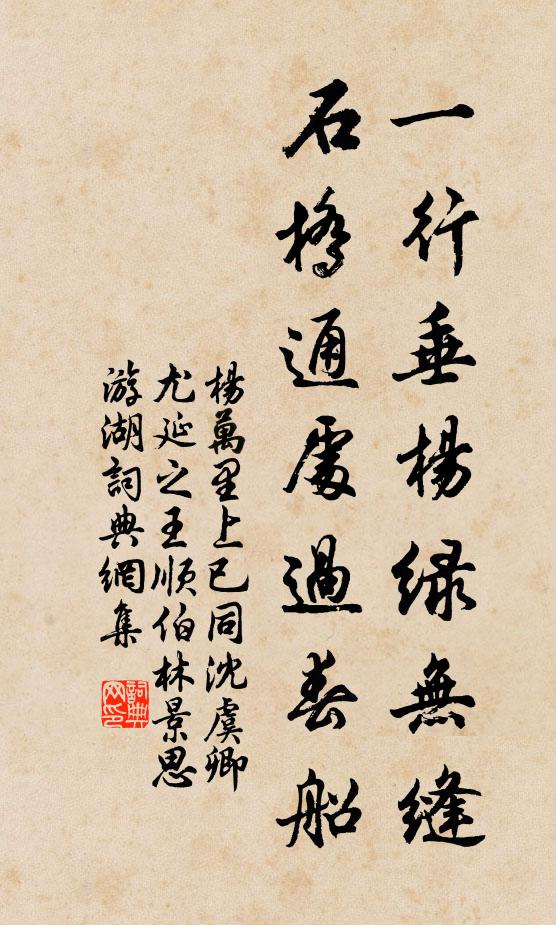 一行垂楊綠無縫
石橋通處過春船
楊萬里上巳同沈虞卿
尤延之王順伯林景思
游湖詞典網集
詞典網印